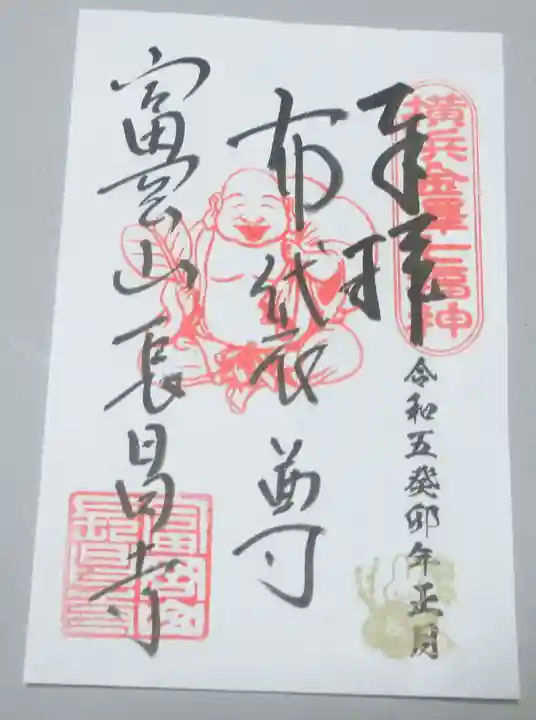 奉拝
横浜金澤七福神
令和五癸卯年正月
布袋尊
富岡山長昌寺